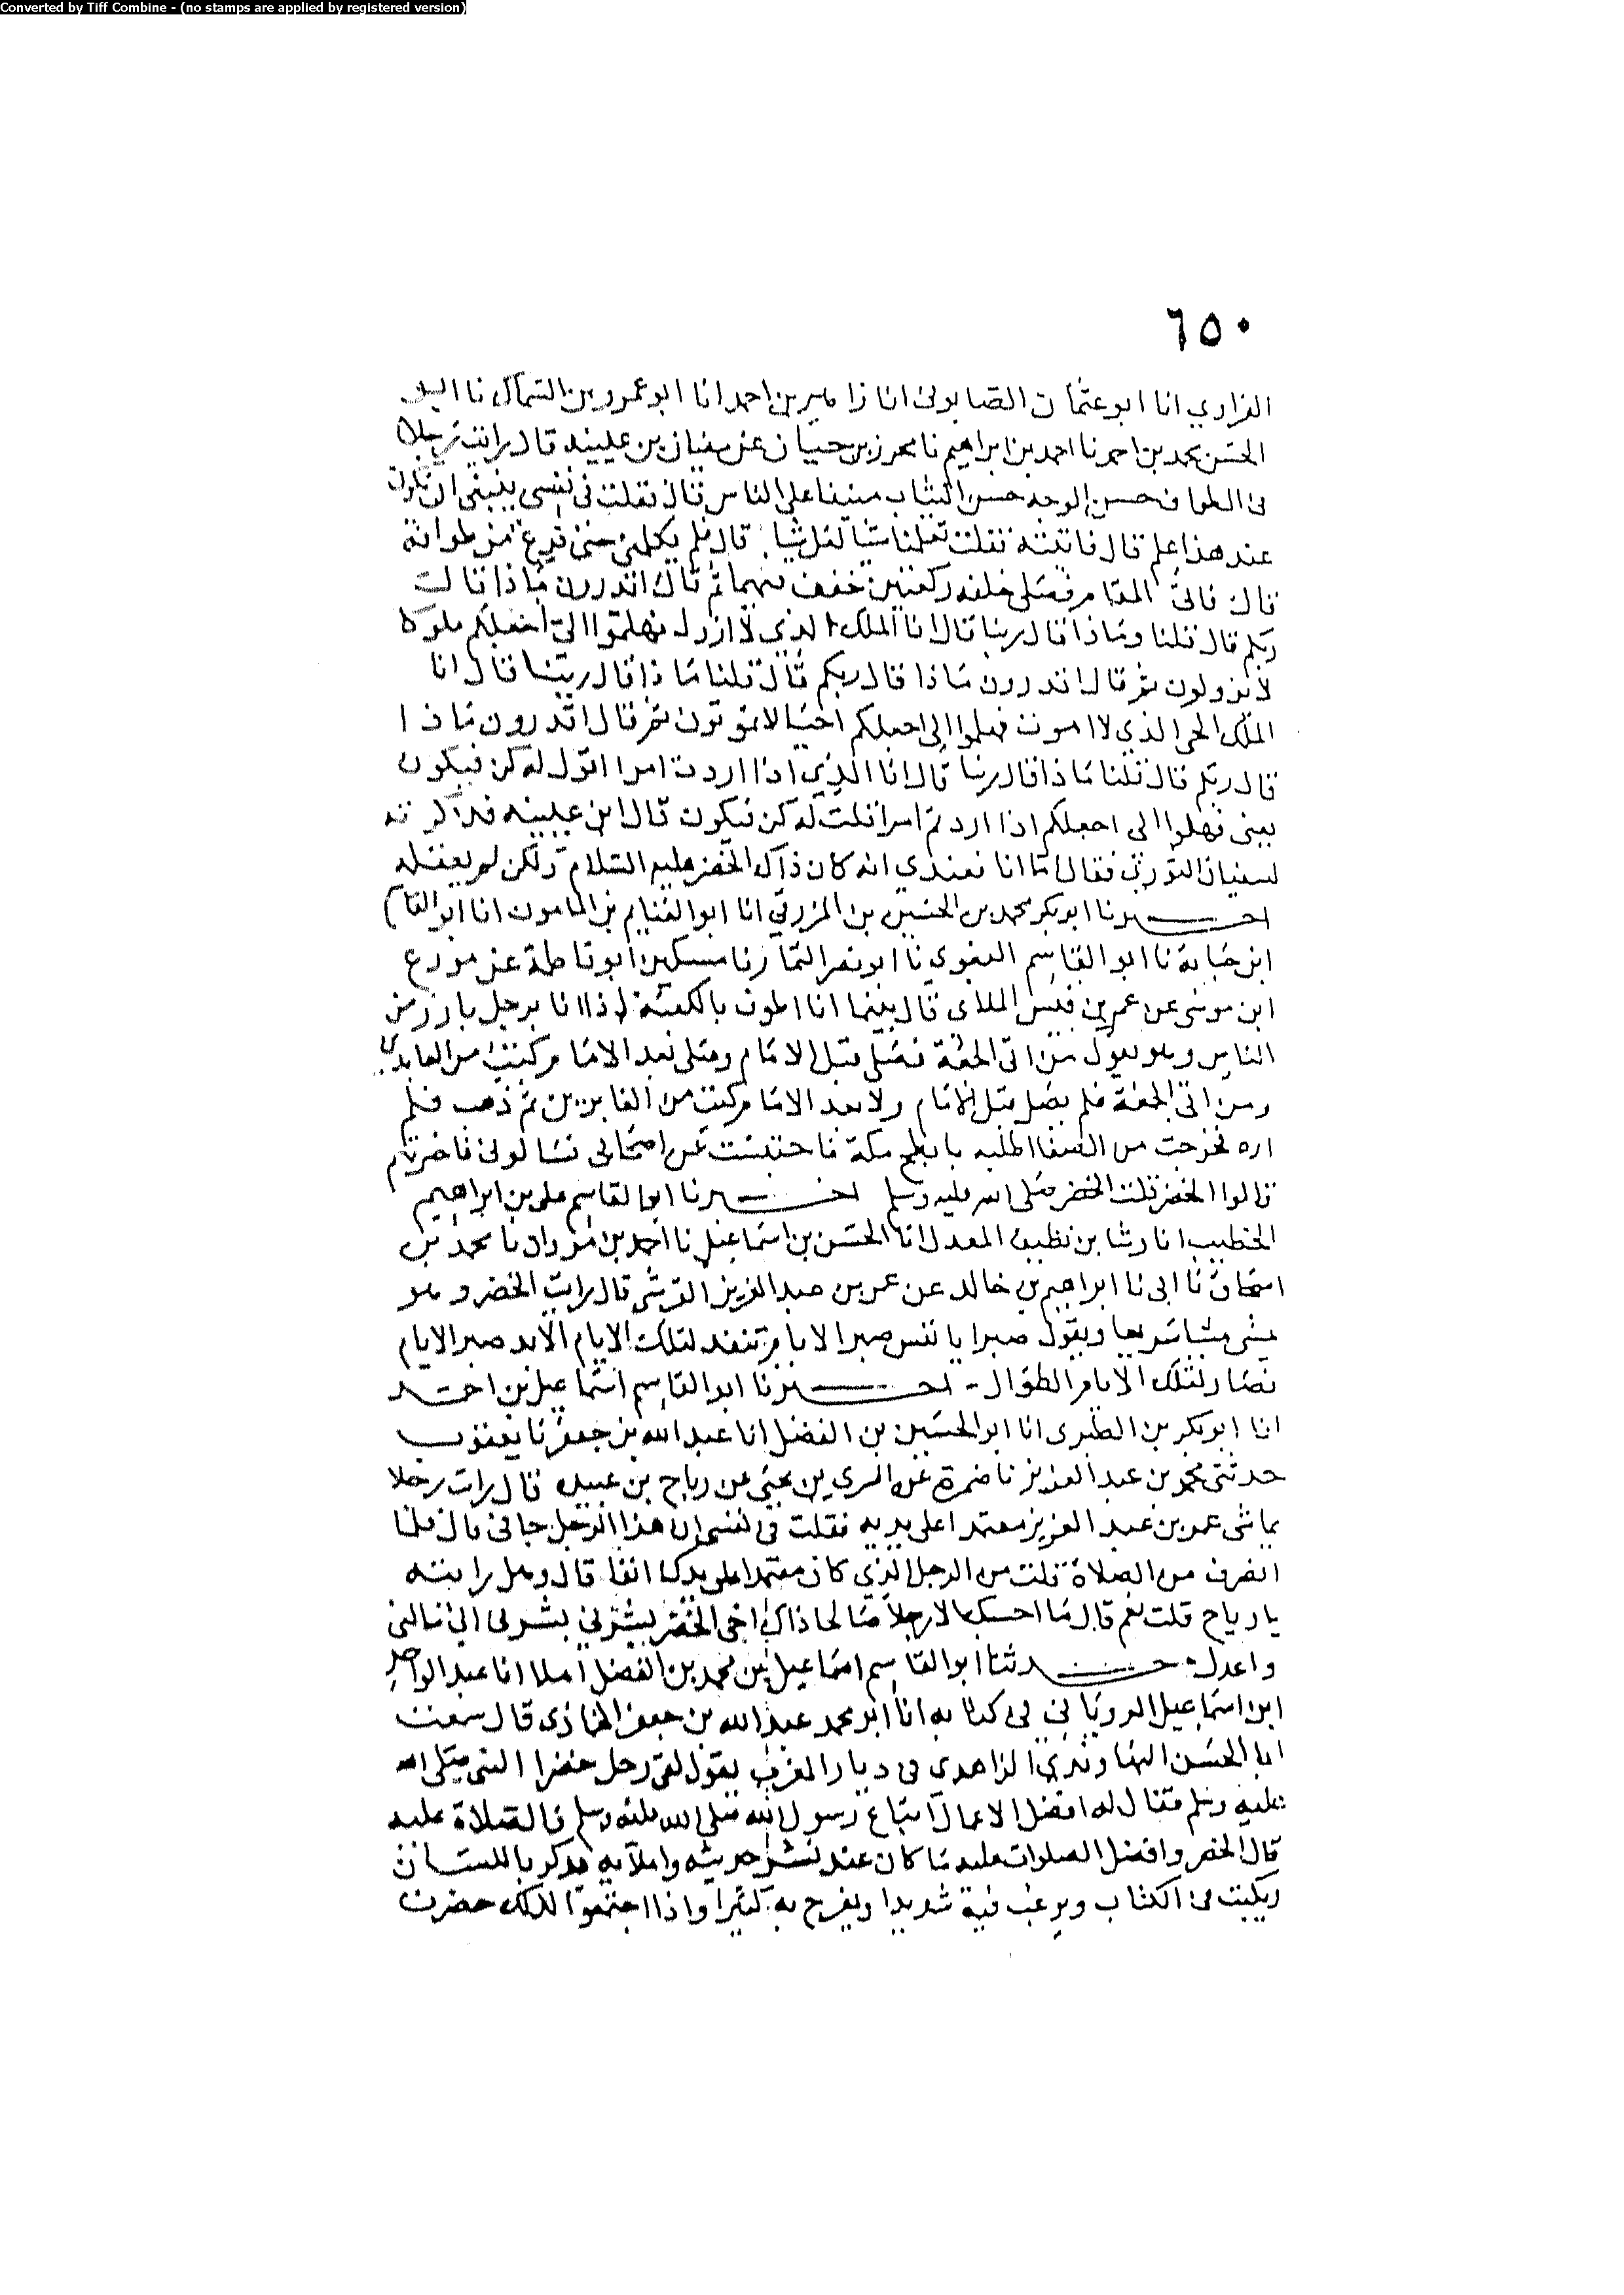 Converted by Tiff Combine - (no stamps are applied by registered version)
٦٥٠
الفراوي انا ابو عثمان الصابوني انا زاهر بن احمد انا ابو عمرو بن السماك نا
الحسن محمد بن احمد نا احمد بن ابراهيم نا محرز بن حيان عن سفيان بن عيينه قال رايت رجلا
في الطواف حسن الوجه حسن الثياب منيفا على الناس قال فقلت في نفسي ينبغي ان يكون
عند هذا علم قال فاتيته فقلت تعلمنا شيا لعل شيا قال فلم يكلمني حتى فرغ من طوافه
قال فاتى المقام فصلى خلفه ركعتين خفف فيهما ثم قال اتدرون ماذا قال
ربكم قال قلنا وماذا قال ربنا قال انا الملك الذي لا ازول فهلموا الي اجعلكم ملوكا
لا تزولون ثم قال اتدرون ماذا قال ربكم قال قلنا ماذا قال ربنا قال انا
الملك الحي الذي لا اموت فهلموا الي اجعلكم احيا لا تموتون ثم قال اتدرون ماذا
قال ربكم قال قلنا ماذا قال ربنا قال انا الذي اذا اردت امرا اقول له كن فيكون
يعني فهلموا الي اجعلكم اذا اردتم امرا قلت له كن فيكون قال ابن عيينه فذكرته
لسفيان الثوري فقال اما انا فعندي انه كان ذاك الخضر عليه السلام ولكن لم يعقله
اخبرنا ابو بكر محمد بن الحسين بن المزرفي انا ابو الغنايم بن المامون انا ابو القاسم
ابن حبابة نا ابو القاسم البغوي نا ابو نصر التمار نا مسكين ابو فاطمة عن مورع
ابن موسى عن عمر بن قيس الملاى قال بينما انا اطوف بالكعبة اذا انا برجل بارز من
الناس وهو يقول من اتى الجمعة فصلى قبل الامام وصلى بعد الامام كتب من العابدين
ومن اتى الجمعة فلم يصل قبل الامام ولا بعد الامام كتب من الغابرين ثم ذهب فلم
اره فخرجت من الصفا اطلبه بابطح مكة فاحتبست عن اصحابي فسالوني فاخبرتهم
قالوا الخضر قلت الخضر صلى الله عليه وسلم اخبرنا ابو القاسم علي بن ابراهيم
الخطيب انا رشا بن نظيف المعدل انا الحسن بن اسماعيل نا احمد بن مروان نا محمد بن
اسحاق نا ابي نا ابراهيم بن خالد عن عمر بن عبد العزيز القرشي قال رايت الخضر وهو
يمشي مشيا سريعا ويقول صبرا يا نفس صبرا لايام تنفد لتلك الايام الابد صبرا لايام
قصار لتلك الايام الطوال - اخبرنا ابو القاسم اسماعيل بن احمد
انا ابو بكر بن الطبرى انا ابو الحسين بن الفضل انا عبد الله بن جعفر نا يعقوب
حدثني محمد بن عبد العزيز نا ضمرة عن السري بن يحيى عن رياح بن عبيده قال رايت رجلا
يماشي عمر بن عبد العزيز معتمدا على يديه فقلت في نفسي ان هذا الرجل جافي قال فلما
انصرف من الصلاة قلت من الرجل الذي كان معتمدا على يدك انفا قال وهل رايته
يا رياح قلت نعم قال ما احسبك الا رجلا صالحا ذاك اخي الخضر بشرني اني سالي
واعدل حدثنا ابو القاسم اسماعيل بن محمد بن الفضل املا انا عبد الواحد
ابن اسماعيل الروياني في كتابه انا ابو محمد عبد الله بن جعفر الخبازي قال سمعت
ابا الحسن النهاوندي الزاهدي في ديار المغرب يقول لقي رجل خضرا النبي صلى الله
عليه وسلم فقال له افضل الاعمال اتباع رسول الله صلى الله عليه وسلم فالصلاة عليه
قال الخضر وافضل الصلوات عليه ما كان عند نشر حديثه واملائه يذكر باللسان
ويكتب في الكتاب ويرغب فيه شديدا ويفرح به كثيرا واذا اجتمعوا لذلك حضرت